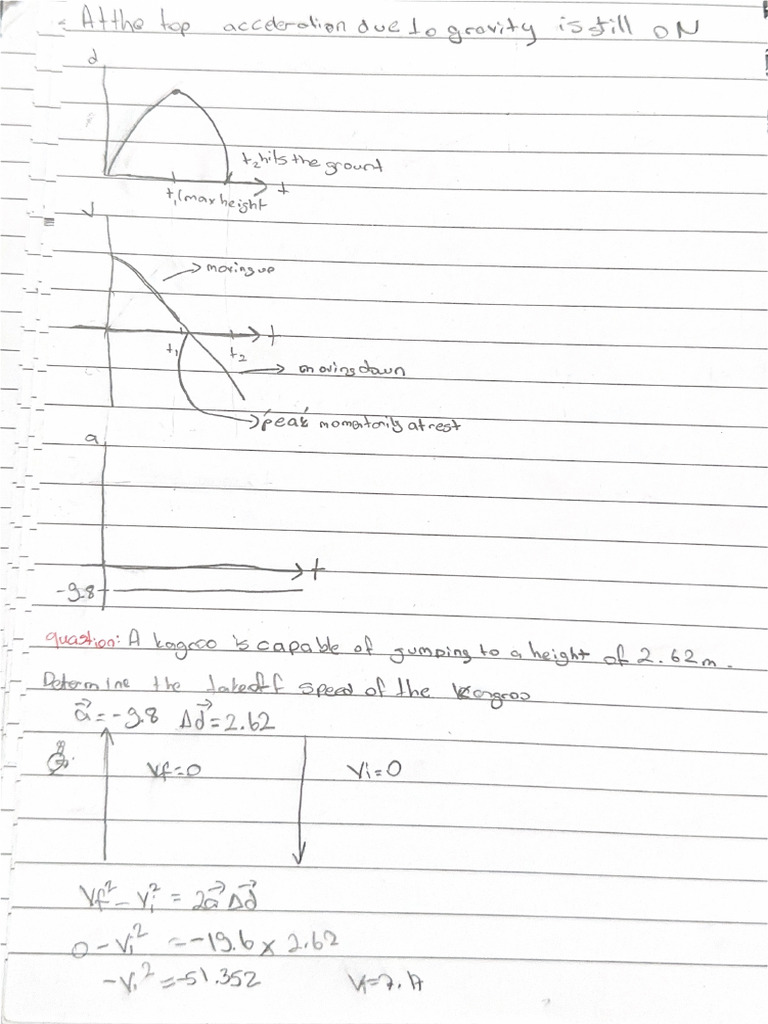 At the top acceleration due to gravity is still ON
d
t₂ hits the ground
t
t₁(max height
V
moving up
t
t₁
t₂
moving down
'peak' momentarily at rest
a
t
-9.8
quastion: A kagroo is capable of jumping to a height of 2.62m.
Determine the takeoff speed of the kangroo
a⃗ = -9.8 Δd⃗ = 2.62
Vf=0
Vi=0
Vf² - Vi² = 2a⃗Δd⃗
0 - Vi² = -19.6 × 2.62
-Vi² = -51.352
Vi=7.17